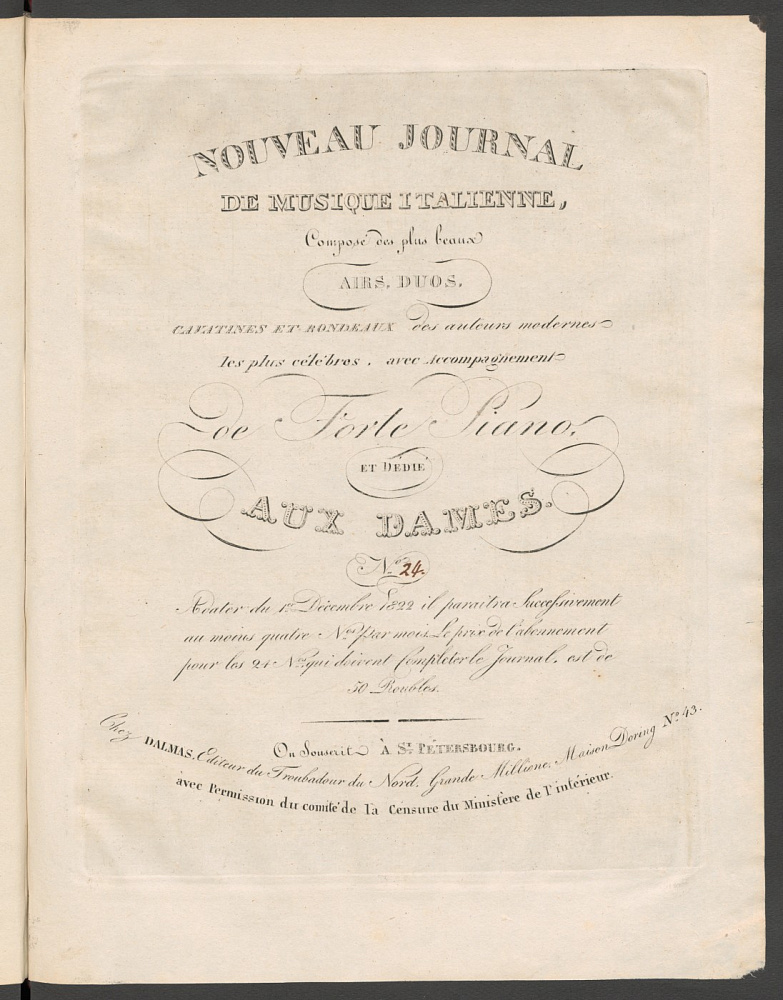 NOUVEAU JOURNAL
DE MUSIQUE ITALIENNE,
Composé des plus beaux
AIRS, DUOS,
CAVATINES ET RONDEAUX des auteurs modernes
les plus célèbres, avec Accompagnement
de Forte Piano,
ET DÉDIÉ
AUX DAMES.
N.os 24.
A dater du 1er Décembre 1822 il paraitra Successivement
au moins quatre N.os par mois. Le prix de l'abonnement
pour les 24 N.os qui doivent Completer le Journal, est de
50 Roubles.
On Souscrit À St. PÉTERSBOURG.
Chez DALMAS, Editeur du Troubadour du Nord, Grande Millione, Maison Doring No. 43.
avec Permission du comité de la Censure du Ministère de l'intérieur.